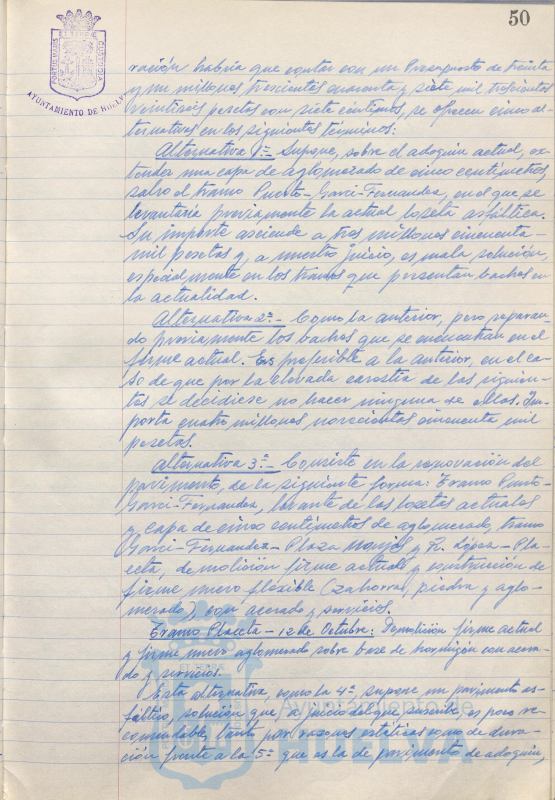 50
PORTUS MARIS
ET TERRE
CUSTODIA
AYUNTAMIENTO DE HUELVA
ración habría que contar con un Presupuesto de treinta
y un millones trescientas cuarenta y siete mil trescientas
veintitrés pesetas con siete céntimos, se ofrecen cinco al-
ternativas en los siguientes términos:
Alternativa 1ª- Supone, sobre el adoquín actual, ex-
tender una capa de aglomerado de cinco centímetros
salvo el tramo Puerto-Garci-Fernandez, en el que se
levantaría previamente la actual loseta asfáltica.
Su importe asciende a tres millones cincuenta
mil pesetas y, a nuestro juicio, es mala solución,
especialmente en los tramos que presentan baches en
la actualidad.
Alternativa 2ª- Como la anterior, pero reparan-
do previamente los baches que se encuentran en el
firme actual. Es preferible a la anterior, en el ca-
so de que por la elevada carestía de las siguien-
tes se decidiese no hacer ninguna de ellas. Im-
porta cuatro millones novecientas cincuenta mil
pesetas.
Alternativa 3ª- Consiste en la renovación del
pavimento, de la siguiente forma: Tramo Puerto-
Garci-Fernandez, levante de las losetas actuales
y capa de cinco centímetros de aglomerado, tramo
Garci-Fernandez-Plaza Monjas y R. López-Pla-
ceta, demolición firme actual y construcción de
firme nuevo flexible (zahorra, piedra y aglo-
merado), con acerado y servicios.
Tramo Placeta-12 de Octubre: Demolición firme actual
y firme nuevo aglomerado sobre base de hormigón con acera-
do y servicios.
Esta alternativa, como la 4ª, supone un pavimento as-
fáltico, solución que, a juicio del que suscribe, es poco re-
comendable, tanto por razones estéticas como de dura-
ción frente a la 5ª que es la de pavimento de adoquín,
Ayuntamiento de
HUELVA